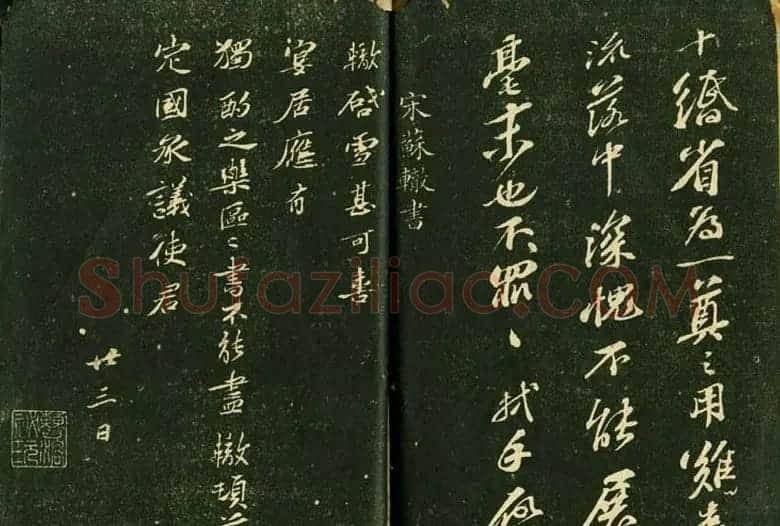 十緡省為一奠之用雖
流落中深愧不能展
毫末也不罪〻軾手啟
宋蘇轍書
轍啓雪甚可喜
宴居應有
獨酌之樂區〻書不能盡轍頓首
定國承議使君
廿三日
Shufaziliao.COM